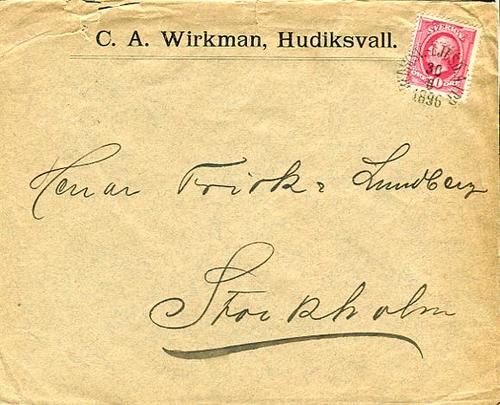 C. A. Wirkman, Hudiksvall.
SVERIGE
10 ÖRE
30
1896
Herrar Frick & Lundberg
Stockholm